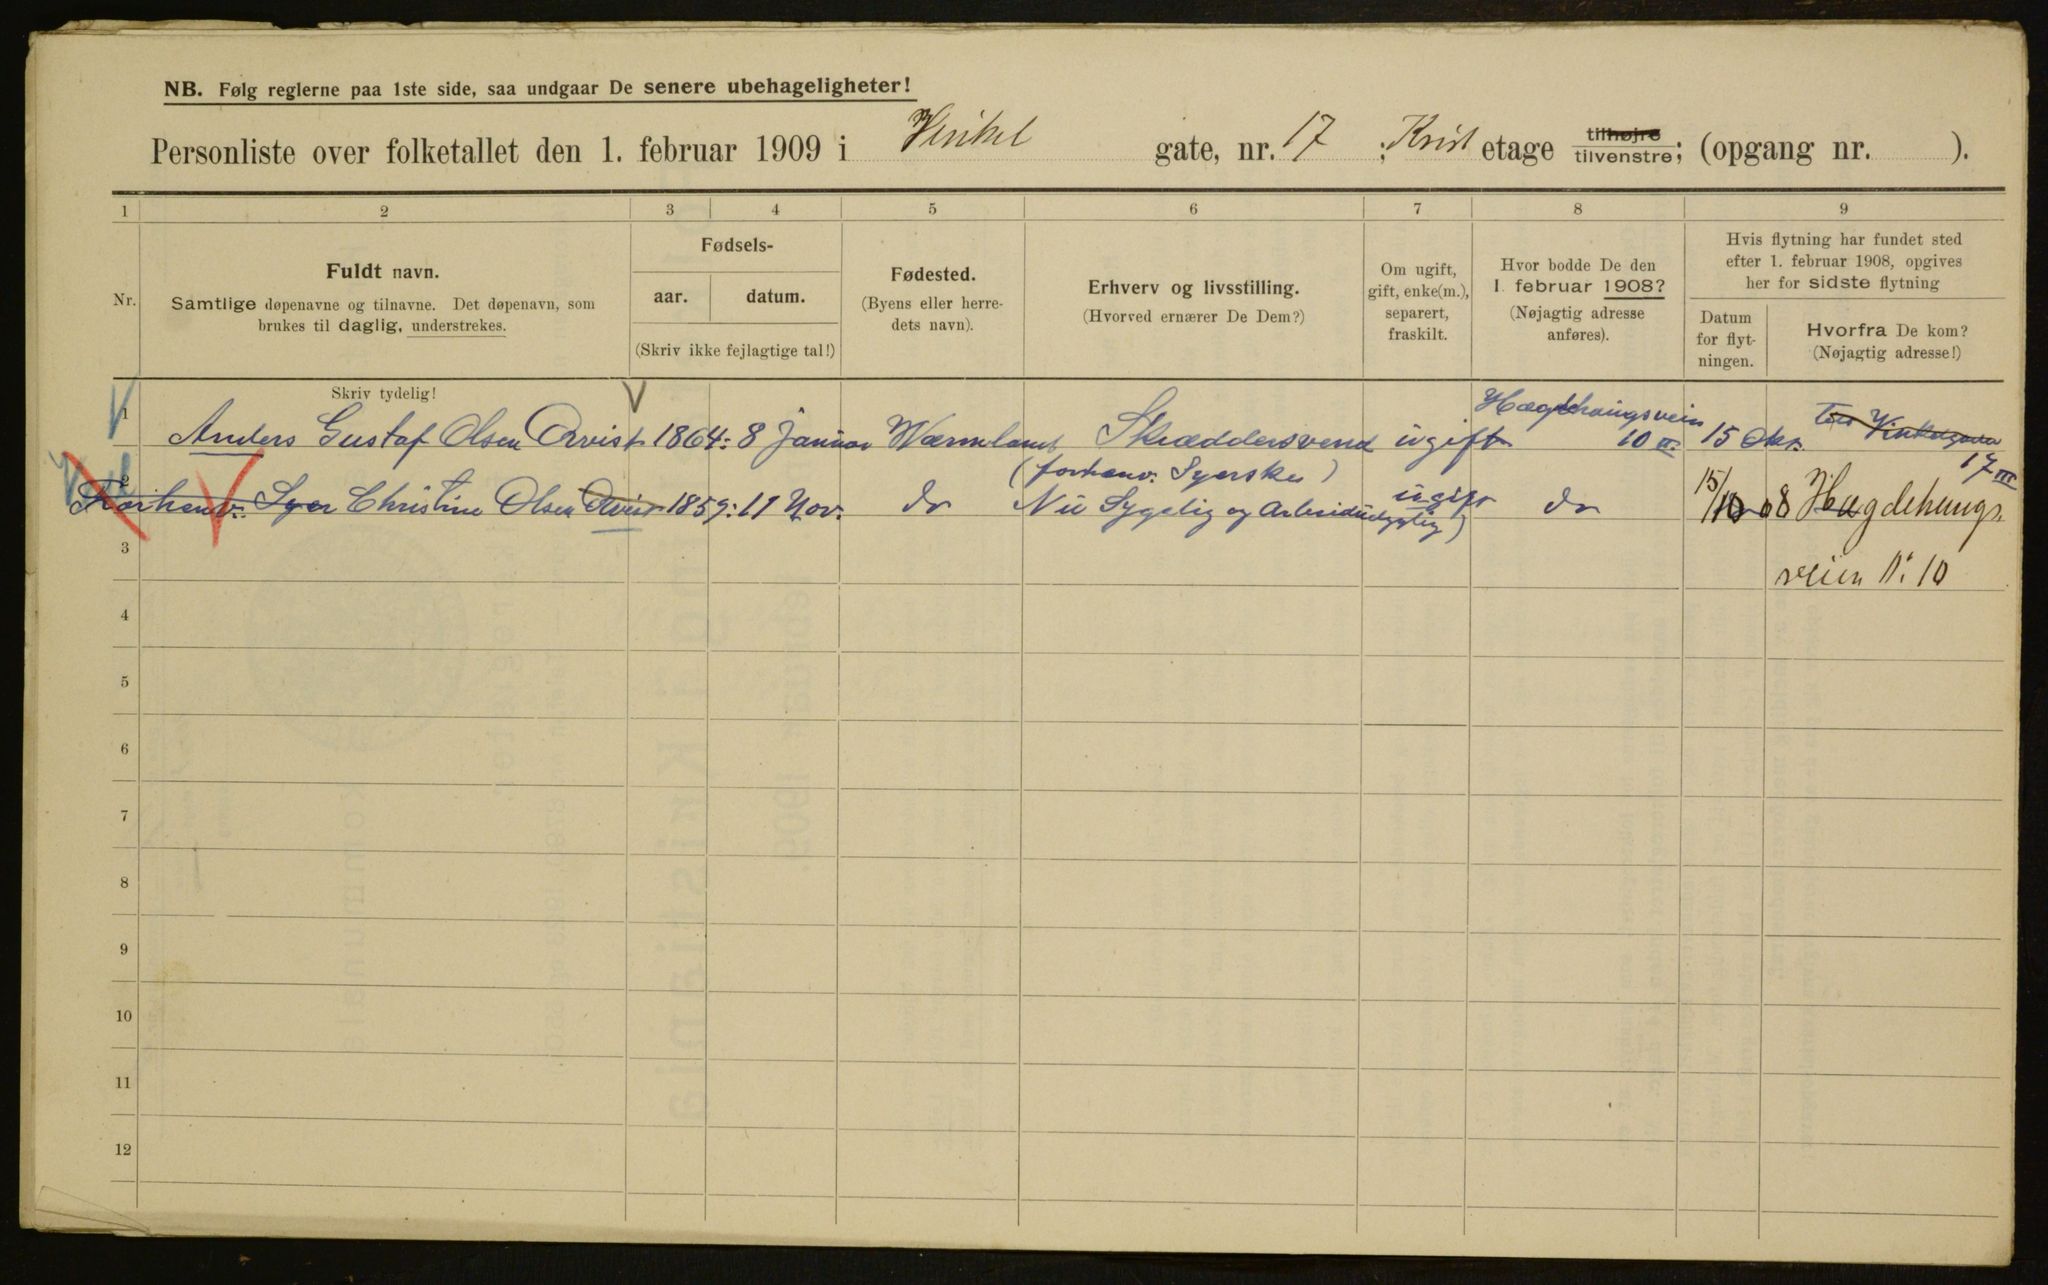 NB. Følg reglerne paa 1ste side, saa undgaar De senere ubehageligheter!
Personliste over folketallet den 1. februar 1909 i Vinkel gate, nr. 17 ; Kvist etage tilhøjre tilvenstre; (opgang nr. ).
1 2 3 4 5 6 7 8 9
Nr.
Fuldt navn.
Samtlige døpenavne og tilnavne. Det døpenavn, som
brukes til daglig, understrekes.
Fødsels-
aar. datum.
(Skriv ikke fejlagtige tal!)
Fødested.
(Byens eller herre-
dets navn).
Erhverv og livsstilling.
(Hvorved ernærer De Dem?)
Om ugift,
gift, enke(m.),
separert,
fraskilt.
Hvor bodde De den
1. februar 1908?
(Nøjagtig adresse
anføres).
Hvis flytning har fundet sted
efter 1. februar 1908, opgives
her for sidste flytning
Datum
for flyt-
ningen.
Hvorfra De kom?
(Nøjagtig adresse!)
Skriv tydelig!
1 Anders Gustaf Olsen Qvist 1864: 8 Januar Wærmland Skræddersvend ugift Hægdehaugsveien 10 III. 15 Okt. Vinkelgaden 17 III
(forhenv. Syerske)
2 Forhenv. Syer Christine Olsen Qvist 1859: 11 Nov. do Nu Sygelig og Arbeidudygtig) ugift do 15/10 08 Hægdehaugs-
3 veien N: 10
4
5
6
7
8
9
10
11
12